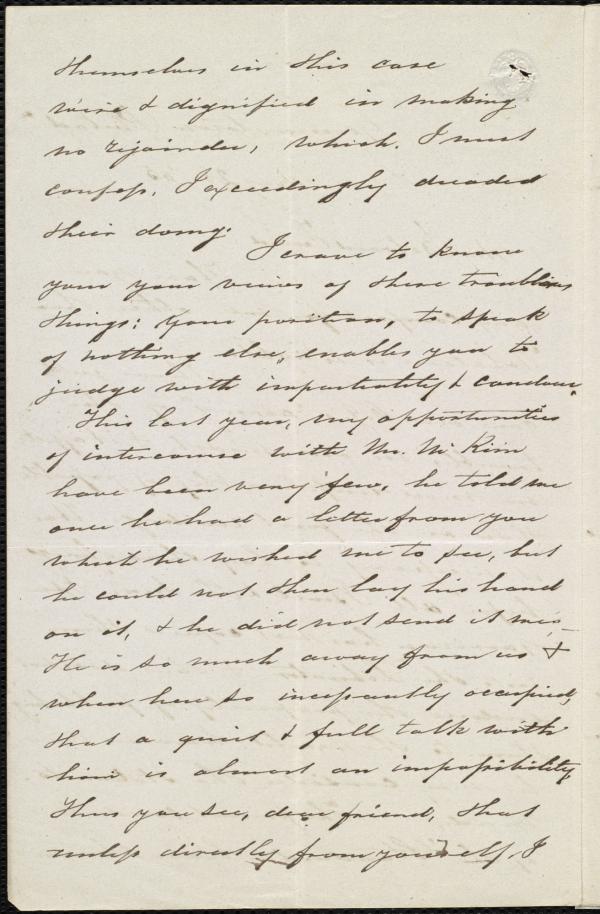 themselves in this case
wise & dignified in making
no rejoinder, which, I must
confess, I exceedingly dreaded
their doing.
I crave to know
your your views of these troublous
things: your position, to speak
of nothing else, enables you to
judge with impartiality & candour.
This last year, my opportunities
of intercourse with Mr. McKim
have been very few, he told me
once he had a letter from you
which he wished me to see, but
he could not then lay his hand
on it, & he did not send it me,_
He is so much away from us &
when here so incessantly occupied,
that a quiet & full talk with
him is almost an impossibility,
Thus you see, dear friend, that
unless directly from yourself, I